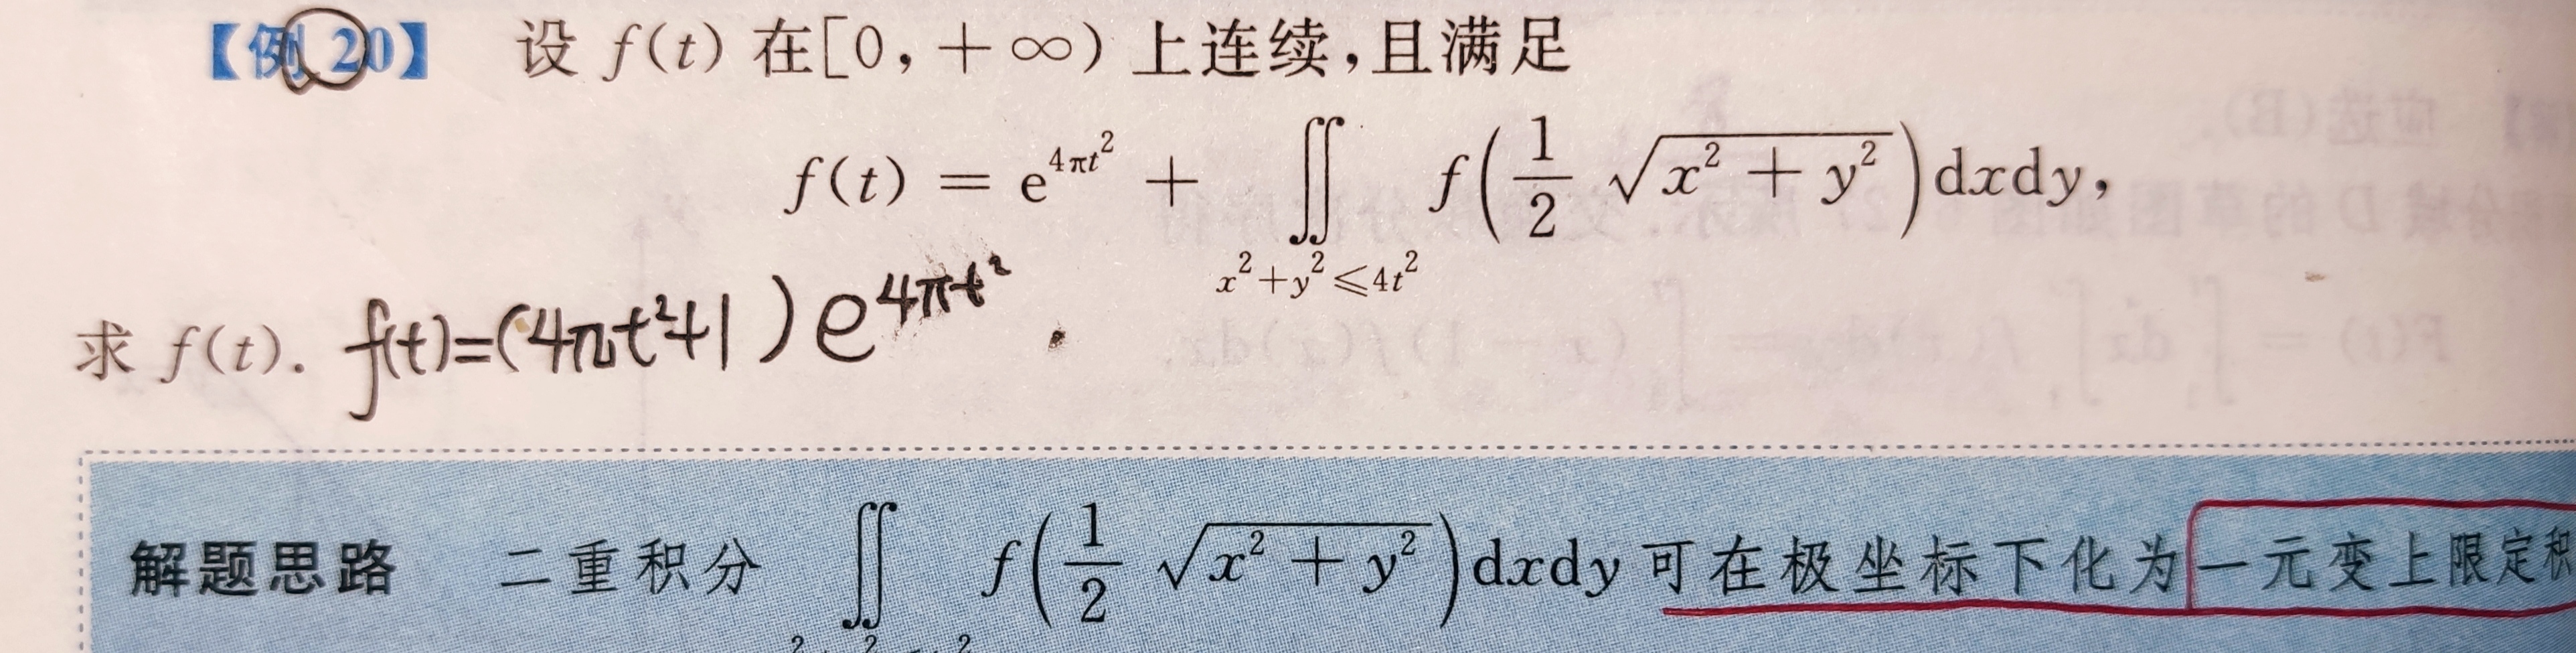 【例 20】 设 f(t) 在[0, +∞) 上连续,且满足
f(t) = e^{4πt^2} + ∬_{x^2+y^2≤4t^2} f(1/2 √(x^2 + y^2))dxdy,
求 f(t). f(t)=(4πt^2+1)e^{4πt^2}.
解题思路 二重积分 ∬ f(1/2 √(x^2 + y^2))dxdy 可在极坐标下化为一元变上限定积